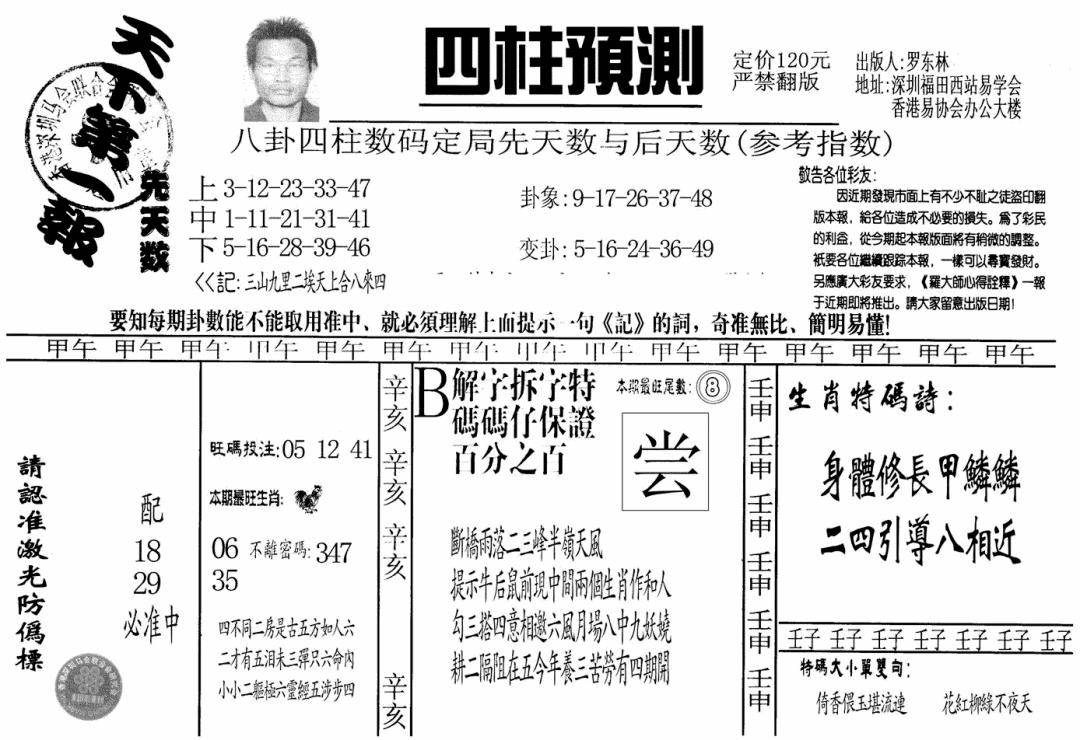 天下第一報
四柱預測
定价120元
严禁翻版
出版人:罗东林
地址:深圳福田西站易学会
香港易协会办公大楼
八卦四柱数码定局先天数与后天数(参考指数)
先天数
上 3-12-23-33-47
中 1-11-21-31-41
下 5-16-28-39-46
卦象:9-17-26-37-48
变卦:5-16-24-36-49
<<記:三山九里二埃天上合八來四
敬告各位彩友:
因近期發現市面上有不少不耻之徒盜印翻
版本報,給各位造成不必要的損失。爲了彩民
的利益,從今期起本報版面將有稍微的調整。
衹要各位繼續跟踪本報,一樣可以尋寶發財。
另應廣大彩友要求,《羅大師心得詮釋》一報
于近期即將推出。請大家留意出版日期!
要知每期卦數能不能取用准中、就必須理解上面提示一句《記》的詞,奇准無比、簡明易懂!
甲午 甲午 甲午 甲午 甲午 甲午 甲午 甲午 甲午 甲午 甲午 甲午 甲午 甲午 甲午
請認准激光防僞標
配
18
29
必准中
旺碼投注:05 12 41
本期最旺生肖:
06 不離密碼:347
35
四不同二房是古五方如人六
二才有五泪未三彈只六命內
小小二軀極六靈經五涉步四
辛亥 辛亥 辛亥 辛亥
B解字拆字特
碼碼仔保證
百分之百
本期最旺尾數:8
尝
斷橋雨落二三峰半嶺天風
提示牛后鼠前現中間兩個生肖作和人
勾三搭四意相邀六風月場八中九妖嬈
耕二隔阻在五今年養三苦勞有四期開
壬申 壬申 壬申 壬申 壬申 壬申
生肖特碼詩:
身體修長甲鱗鱗
二四引導八相近
壬子 壬子 壬子 壬子 壬子 壬子 壬子
特碼大小單雙句:
倚香偎玉堪流連 花紅柳綠不夜天